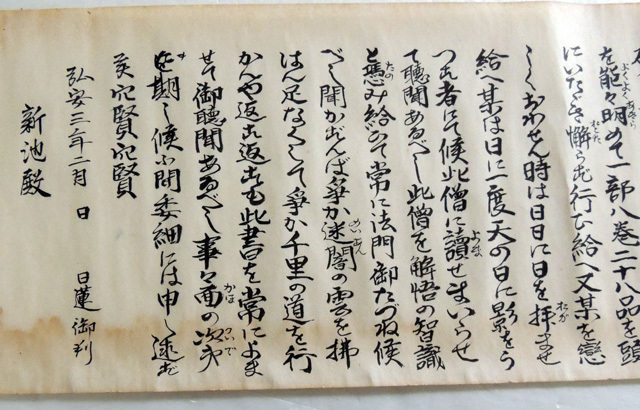 を能々明めて一部八巻二十八品を頭
にいたゞき懈らず行ひ給へ又某を戀
しくおわせん時は日日に日を拝ませ
給へ某は日に一度天の日に影をう
つす者にて候此僧に讀せまいらせ
て聽聞あるべし此僧を解悟の智識
と憑み給ひて常に法門御たづね候
べし聞かずんば爭か迷闇の雲を拂
はん足なくして爭か千里の道を行
かんや返す返すも此書を常によま
せて御聽聞あるべし事々面の次手
を期し候間委細には申し述ず
候穴賢穴賢
弘安三年二月 日 日蓮 御判
新池殿